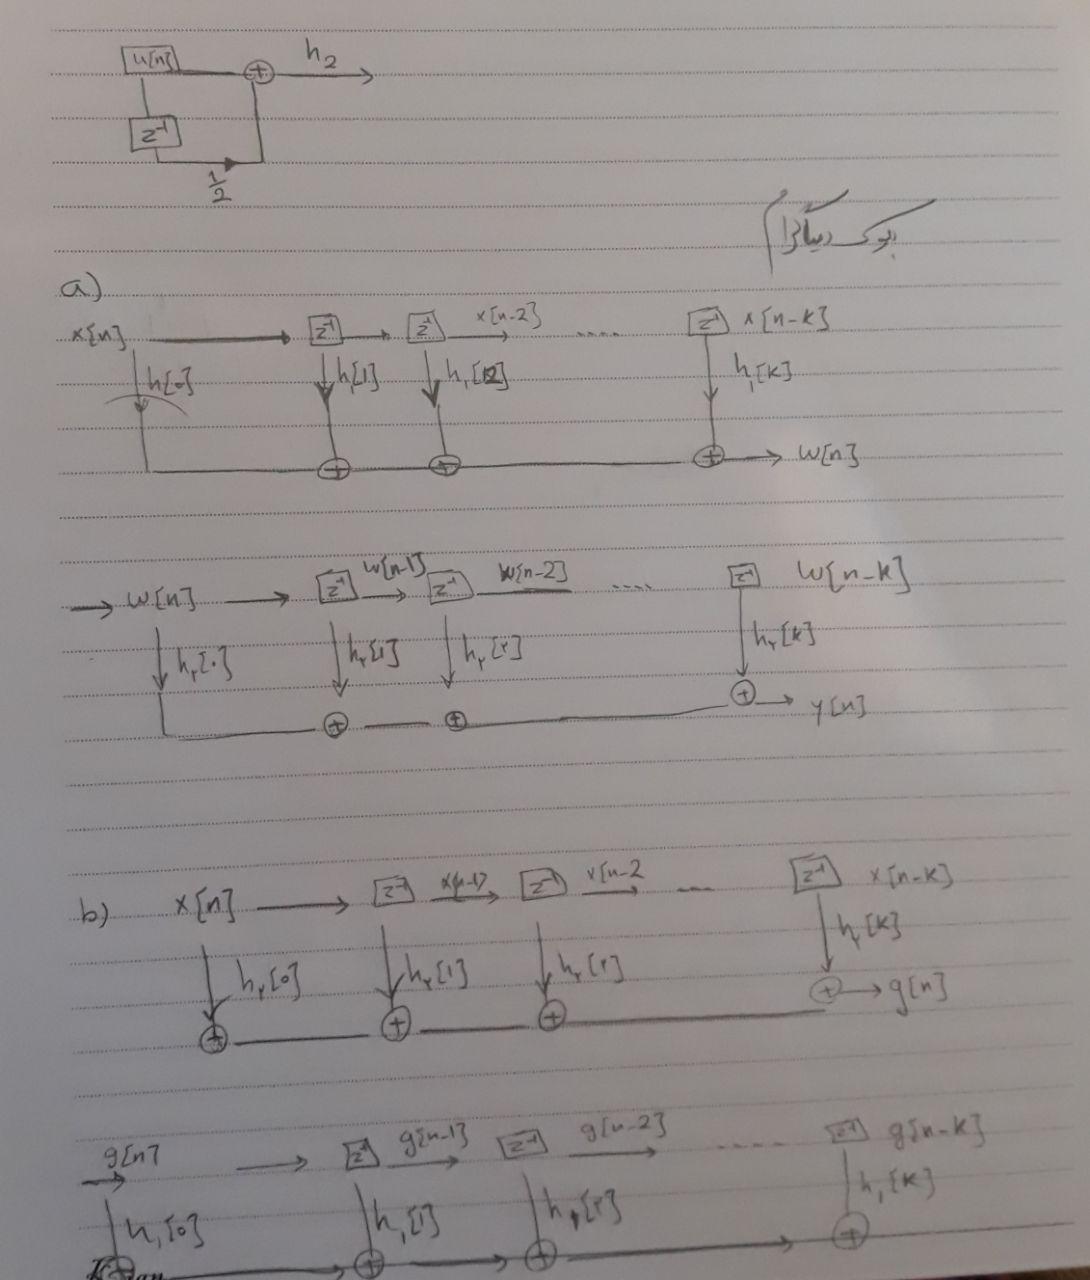 u[n] + h2
z⁻¹
1/2
بلوک دیاگرام
a)
x[n] z⁻¹ z⁻¹ x[n-2] ..... z⁻¹ x[n-k]
h[0] h[1] h₁[2] h₁[k]
+ + + w[n]
w[n] z⁻¹ w[n-1] z⁻¹ w[n-2] .... z⁻¹ w[n-k]
h۲[۰] h۲[1] h۲[۲] h۲[k]
+ + + y[n]
b) x[n] z⁻¹ x[n-1] z⁻¹ x[n-2 .... z⁻¹ x[n-k]
h۲[0] h۲[1] h۲[۲] h۲[k]
+ + + + g[n]
g[n] z⁻¹ g[n-1] z⁻¹ g[n-2] ..... z⁻¹ g[n-k]
h₁[0] h₁[1] h₁[۲] h₁[k]
+ + +